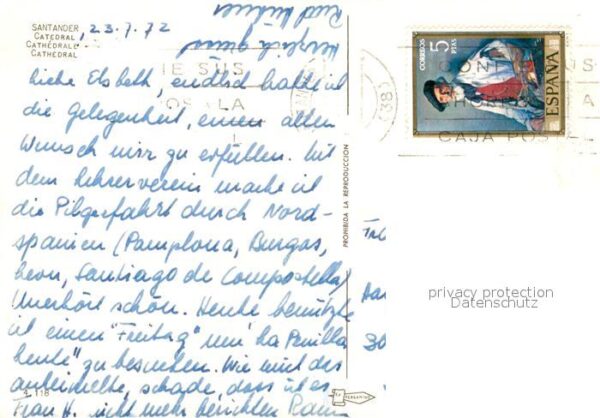 SANTANDER
CATEDRAL
CATHÉDRALE
CATHEDRAL
23.7.72
Liebe Elsbeth, endlich hatte ich
die Gelegenheit, einen alten
Wunsch mir zu erfüllen. Mit
dem Lehrerverein mache ich
die Pilgerfahrt durch Nord-
spanien (Pamplona, Burgos,
Leon, Santiago de Compostella)
Unerhört schön. Heute benützte
ich einen "Freitag" um "La Penilla
heute" zu besuchen. Wie mich das
anheimelte, schade, dass ich es
Frau H. nicht mehr berichten kann
Herzlich
Ruth
PROHIBIDA LA REPRODUCCION
CORREOS
5
PTAS
ESPAÑA
CAJA POS
privacy protection
Datenschutz
118